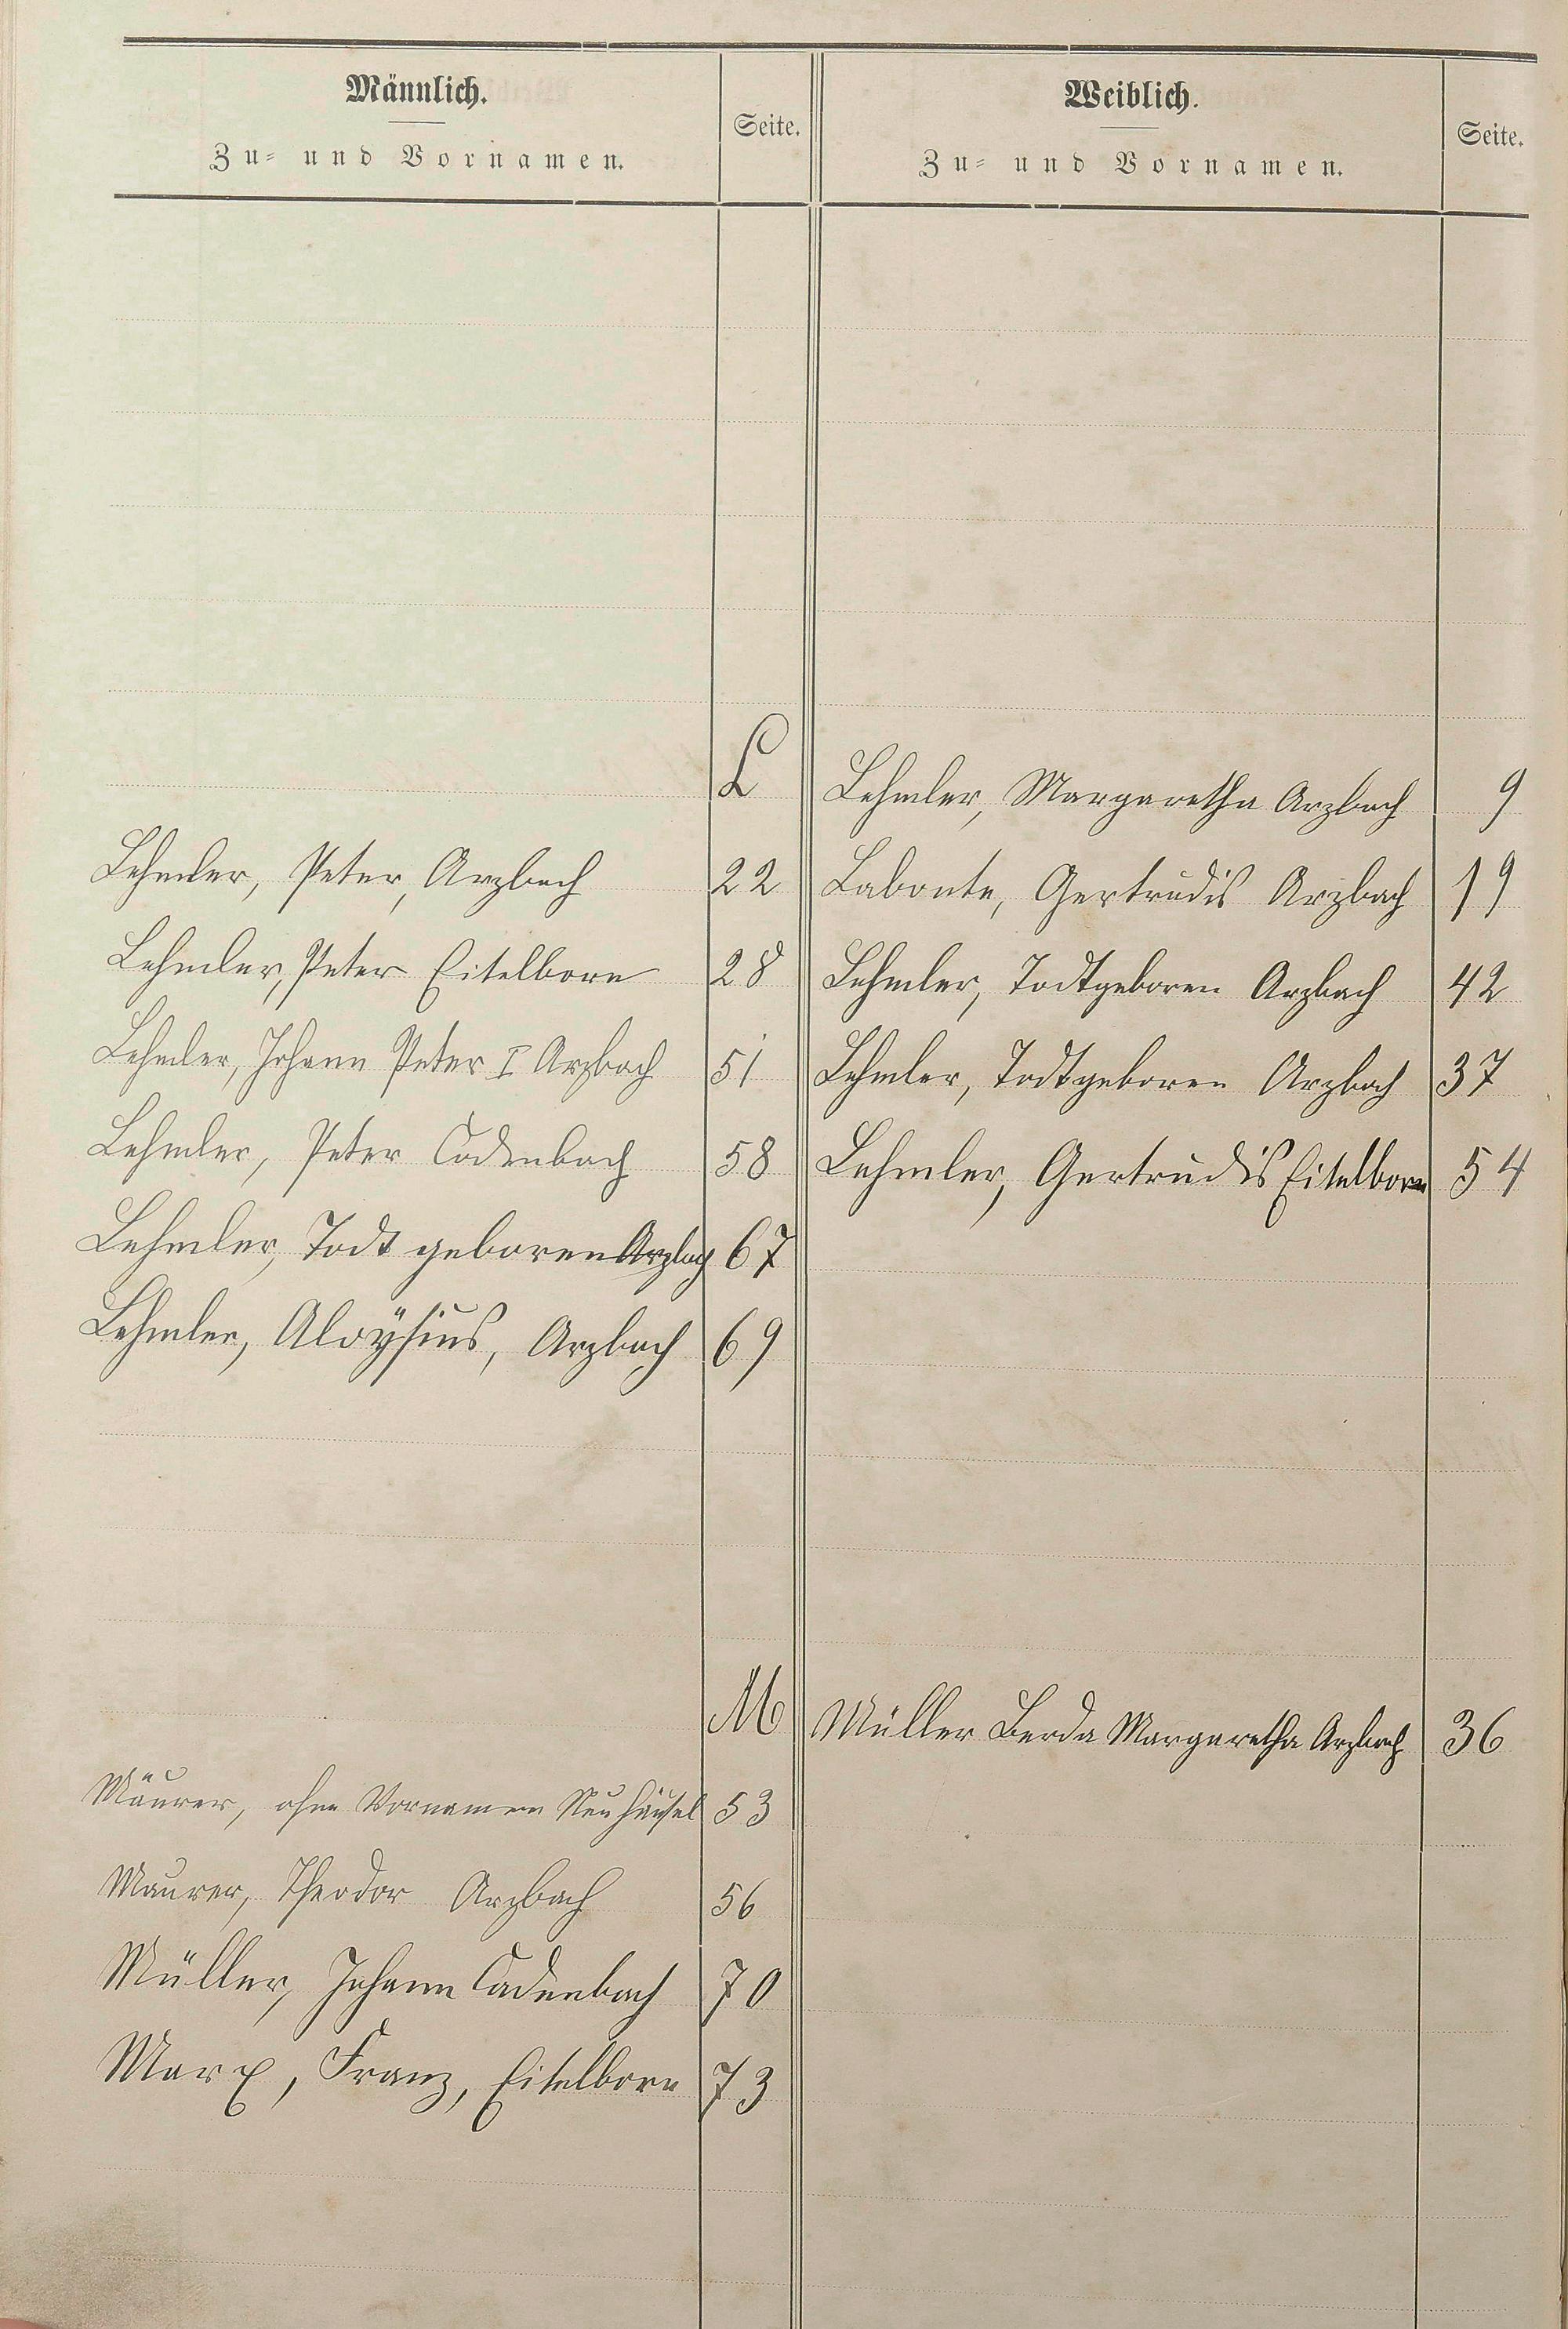 Männlich.
Zu- und Vornamen.
Seite.
Weiblich.
Zu- und Vornamen.
Seite.
L
Lehmler, Margaretha Arzbach 9
Lehmler, Peter, Arzbach 22
Labonte, Gertrudis Arzbach 19
Lehmler, Peter Eitelborn 28
Lehmler, Todtgeboren Arzbach 42
Lehmler, Johann Peter I Arzbach 51
Lehmler, Todtgeboren Arzbach 37
Lehmler, Peter Cadenbach 58
Lehmler, Gertrudis Eitelborn 54
Lehmler, Todt geboren Arzbach 67
Lehmler, Aloÿsius, Arzbach 69
M
Müller Margaretha Arzbach 36
Mäurer, ohne Vornamen Neuhäusel 53
Maurer, Theodor Arzbach 56
Müller, Johann Cadenbach 70
Marx, Franz, Eitelborn 73